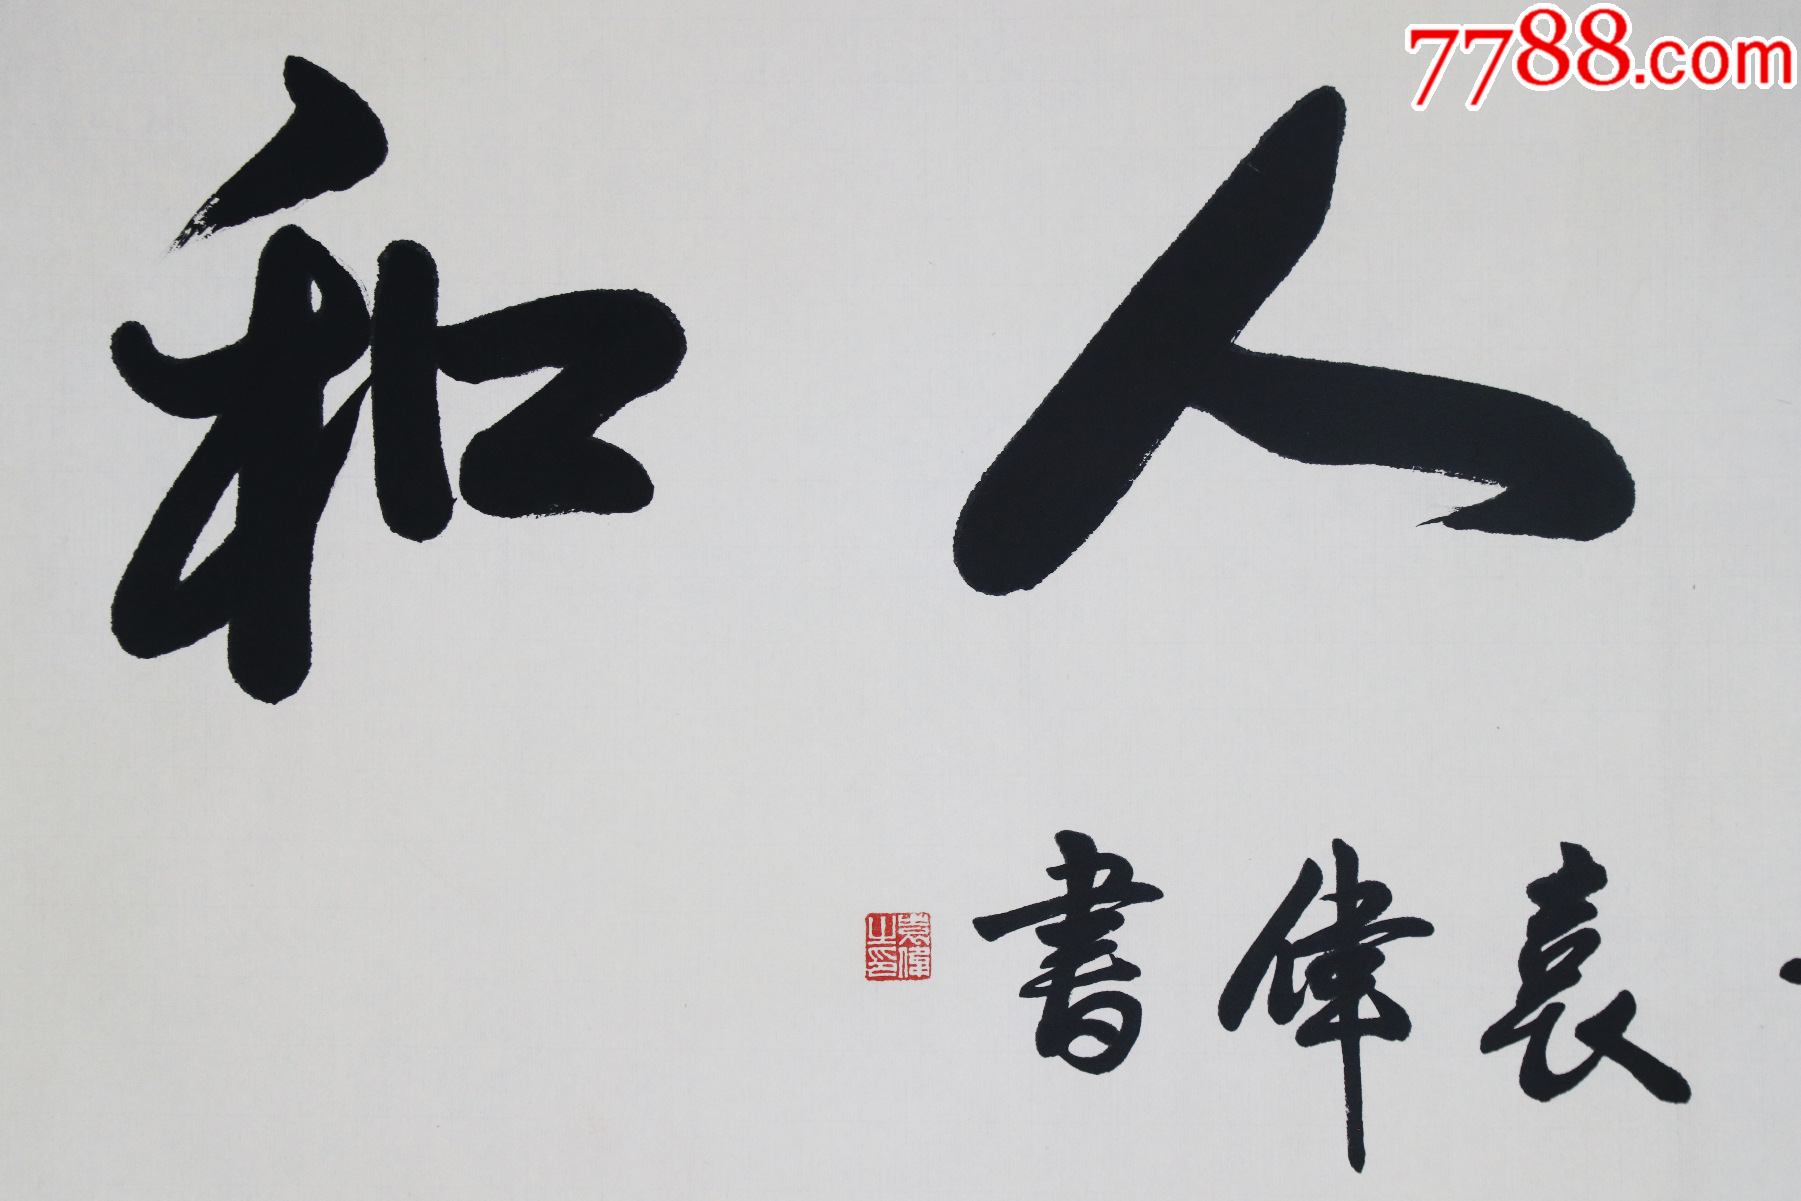 7788.com
人和
袁偉書
袁偉之印